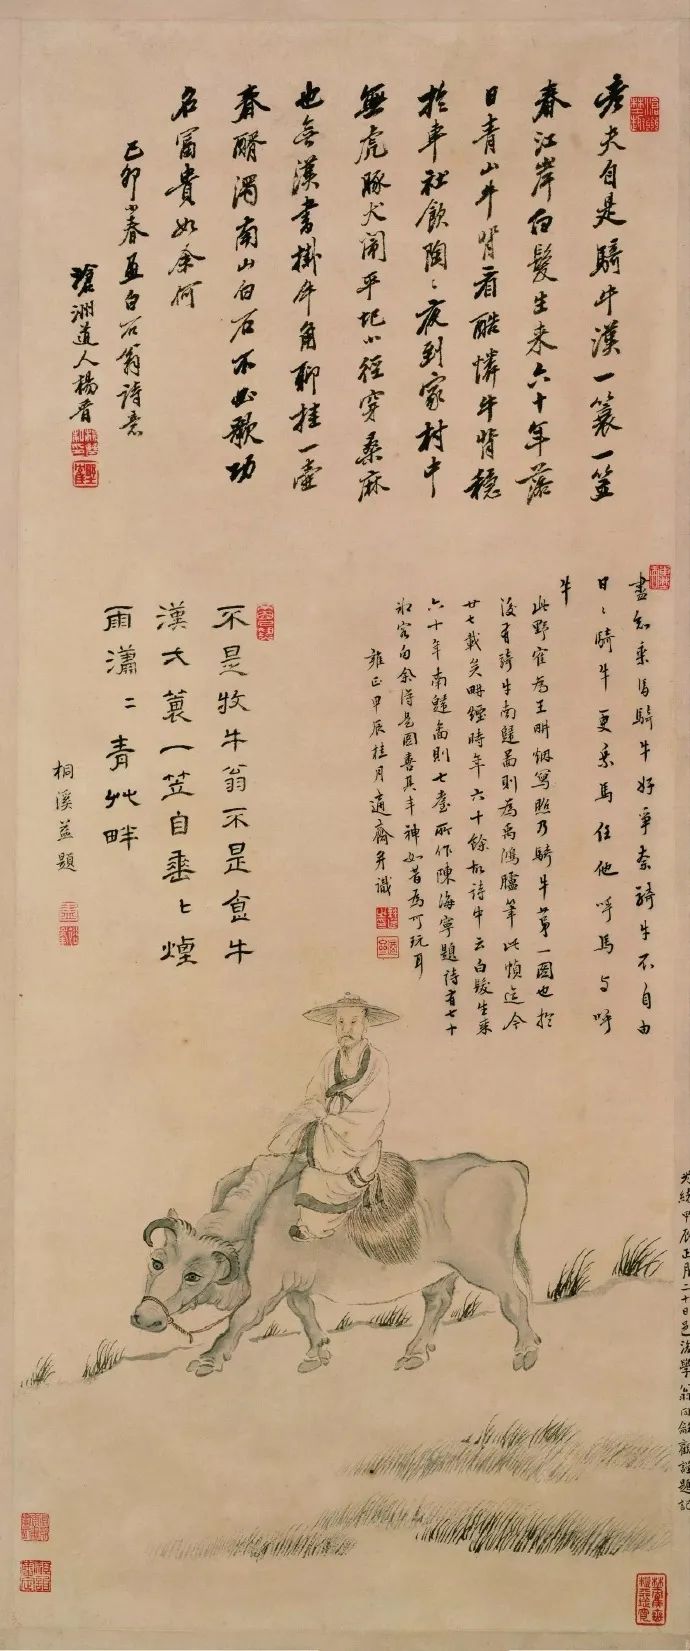 老夫自是騎牛漢一蓑一笠
春江岸白髮生来六十年落
日青山牛背看酷憐牛背穩
於車社飲陶〻夜到家村中
無虎豚犬鬧平圯小徑穿桑麻
也無漢書掛牛角聊挂一壺
春醑濁南山白石不必歌功
名富貴如余何
己卯小春畫白石翁詩意
瑲洲道人楊晋
盡知乘馬騎牛好爭奈騎牛不自由
日〻騎牛更乘馬任他呼馬与呼
牛
此野崔為王畊烟寫照乃騎牛第一圖也於
後有騎牛南
圖則為禹鴻臚筆此幀迄今
廿七載矣畊煙時年六十餘故詩中云白髮生来
六十年南
圖則七
所作陳海寧題詩有七十
白余得是圖喜其丰神如昔為可玩耳
雍正甲辰桂月適齋并識
不是牧牛翁不是食牛
漢大蓑一笠自垂〻煙
雨瀟〻青艸畔
桐溪益題
光緒甲辰正月二十日邑後學翁同龢觀謹題記